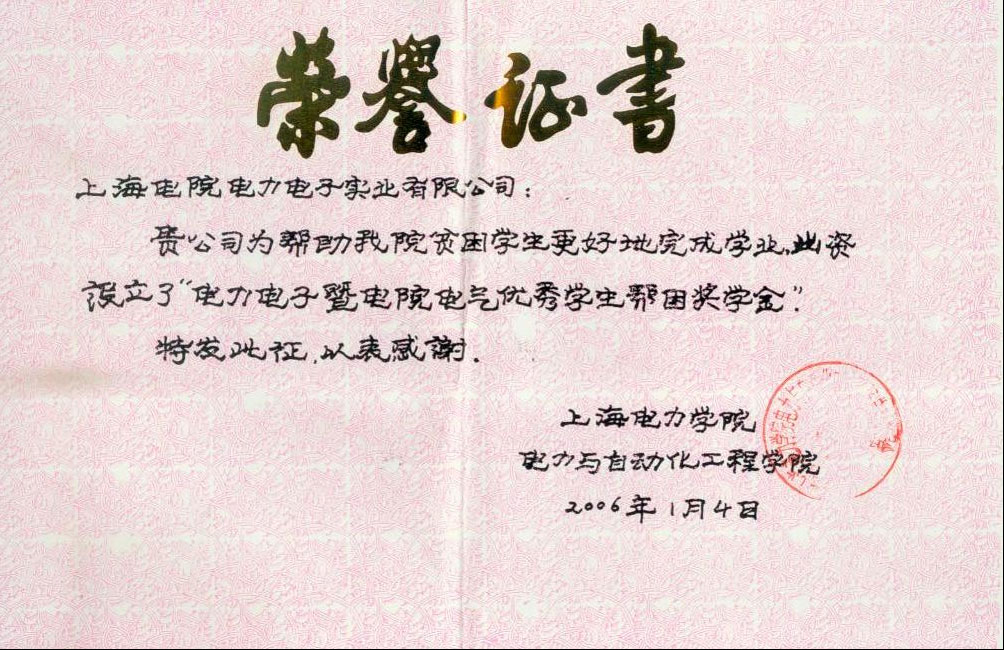 荣誉证书
上海电院电力电子实业有限公司：
贵公司为帮助我院贫困学生更好地完成学业，出资
设立了“电力电子暨电院电气优秀学生帮困奖学金”。
特发此证，以表感謝．
上海电力学院
电力与自动化工程学院
2006年1月4日